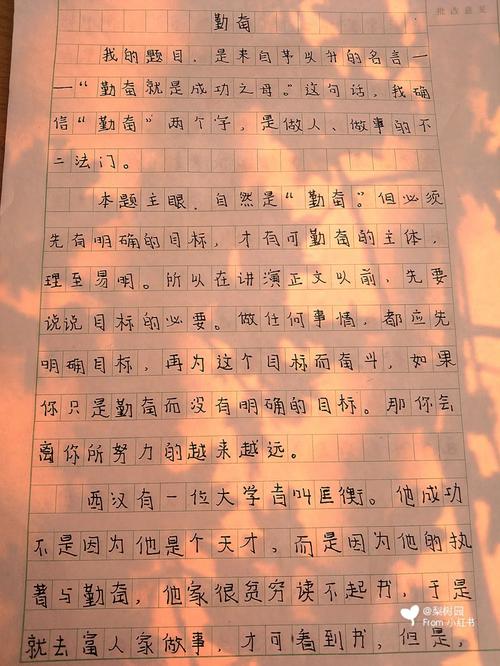 批改意见
勤奋
我的题目，是来自茅以升的名言—
—“勤奋就是成功之母。”这句话，我确
信“勤奋”两个字，是做人、做事的不
二法门。
本题主眼，自然是“勤奋”。但必须
先有明确的目标，才有可勤奋的主体，
理至易明。所以在讲演正文以前，先要
说说目标的必要。做任何事情，都应先
明确目标，再为这个目标而奋斗，如果
你只是勤奋而没有明确的目标。那你会
离你所努力的越来越远。
西汉有一位大学者叫匡衡。他成功
不是因为他是个天才，而是因为他的执
着与勤奋，他家很贫穷读不起书，于是
就去富人家做事，才可看到书，但是，
@梨树园
From 小红书